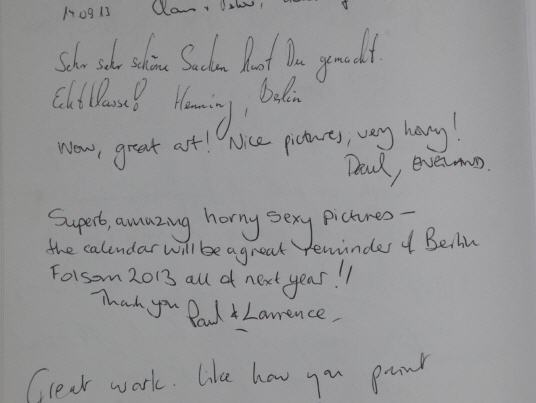 14.09.13
Sehr sehr schöne Sachen hast Du gemacht.
Echt klasse! Henning, Berlin
Wow, great art! Nice pictures, very horny!
Paul, ENGLAND.
Superb, amazing horny sexy pictures –
the calendar will be a great reminder of Berlin
Folsom 2013 all of next year!!
Thank you Paul & Lawrence –
Great work. like how you paint